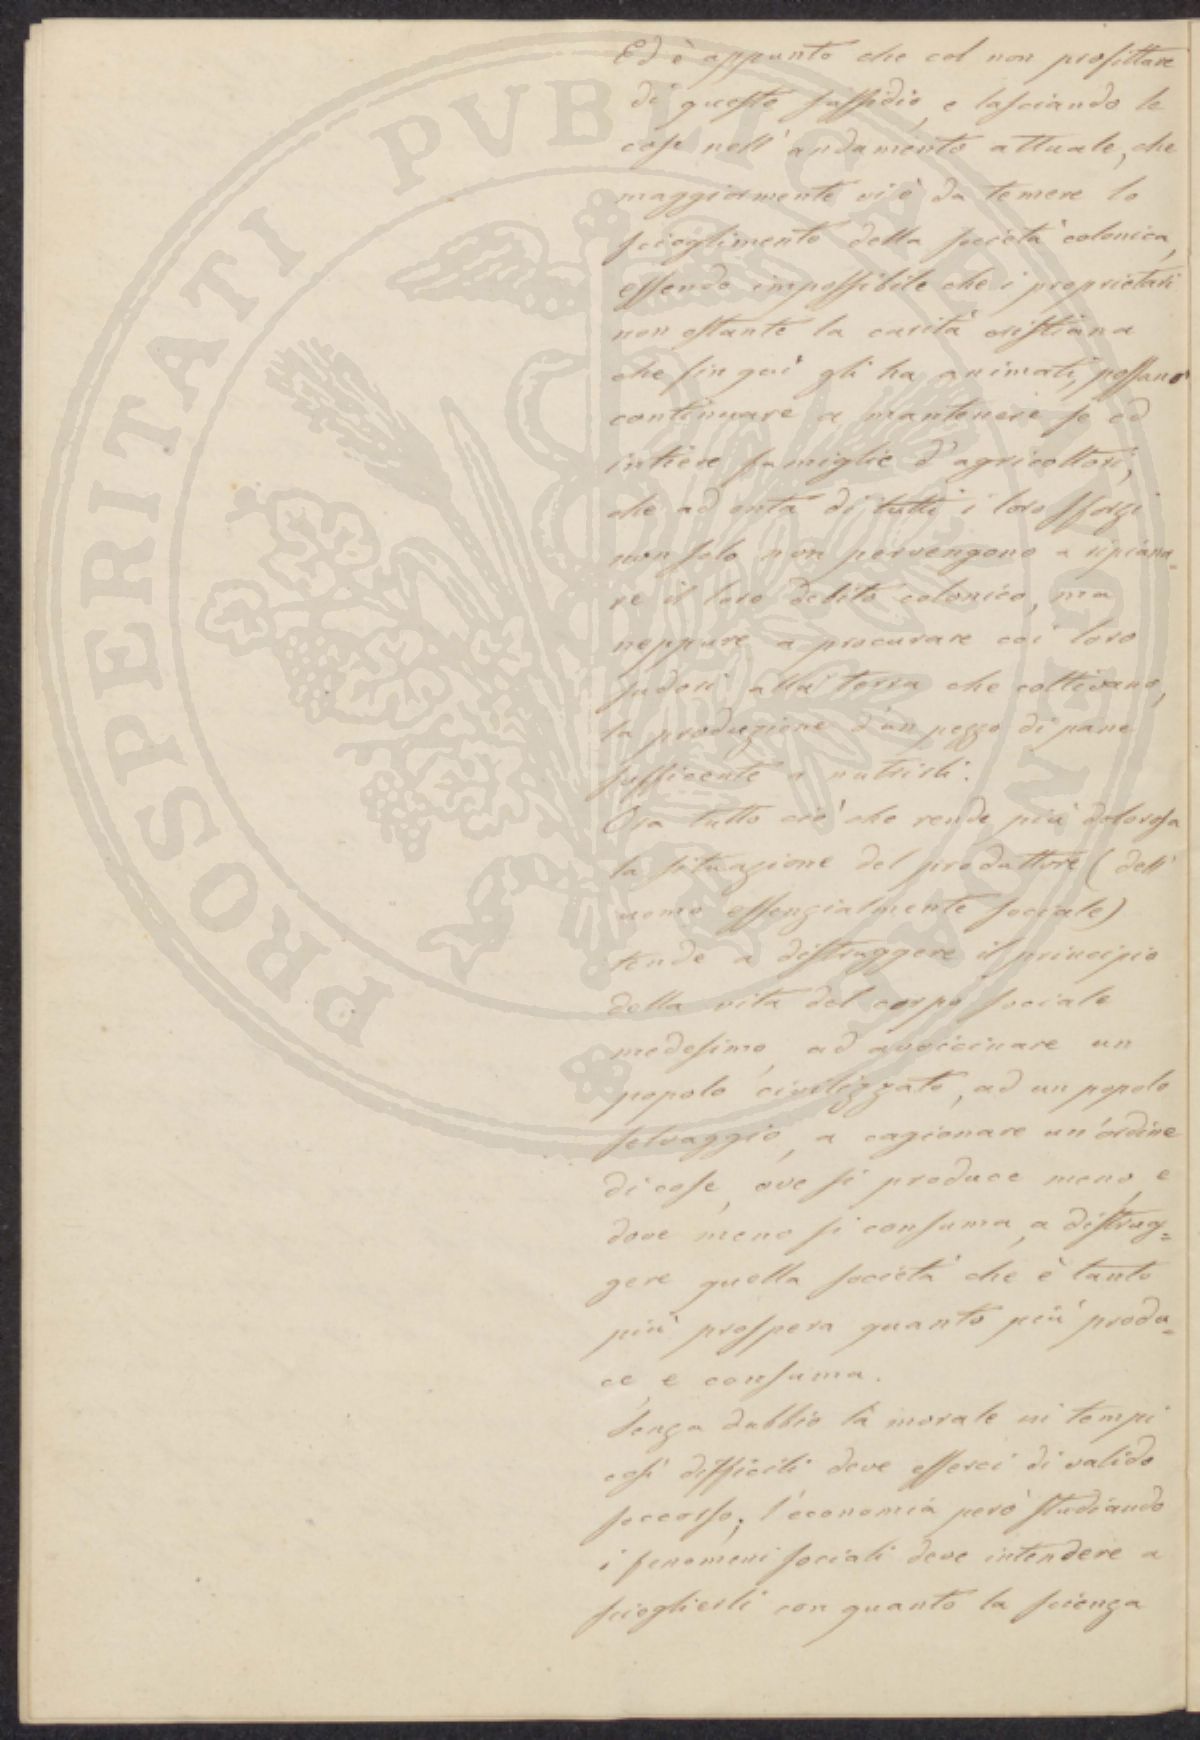 Ed è appunto che col non profittare
di questo sussidio, e lasciando le
cose nell'andamento attuale, che
maggiormente vi è da temere lo
scioglimento della società colonica,
essendo impossibile che i proprietari
non ostante la carità cristiana
che sin qui gli ha animati, possano
continuare a mantenere se ed
intiere famiglie d'agricoltori,
che ad onta di tutti i loro sforzi
non solo non pervengono a ripiana=
re il loro debito colonico, ma
neppure a procurare coi loro
sudori alla terra che coltivano,
la produzione d'un pezzo di pane
sufficente a nutrirli.
Ora tutto ciò che rende più dolorosa
la situazione del produttore (dell'
uomo essenzialmente sociale)
tende a distruggere il principio
della vita del corpo sociale
medesimo, ad avvicinare un
popolo civilizzato, ad un popolo
selvaggio, a cagionare un'ordine
di cose, ove si produce meno, e
dove meno si consuma, a distrug=
gere quella società che è tanto
più prospera quanto più produ=
ce, e consuma.
Senza dubbio la morale in tempi
così difficili deve esserci di valido
soccorso; l'economia però studiando
i fenomeni sociali deve intendere a
scioglierli con quanto la scienza
PROSPERITATI PVBLICAE AVGENDAE